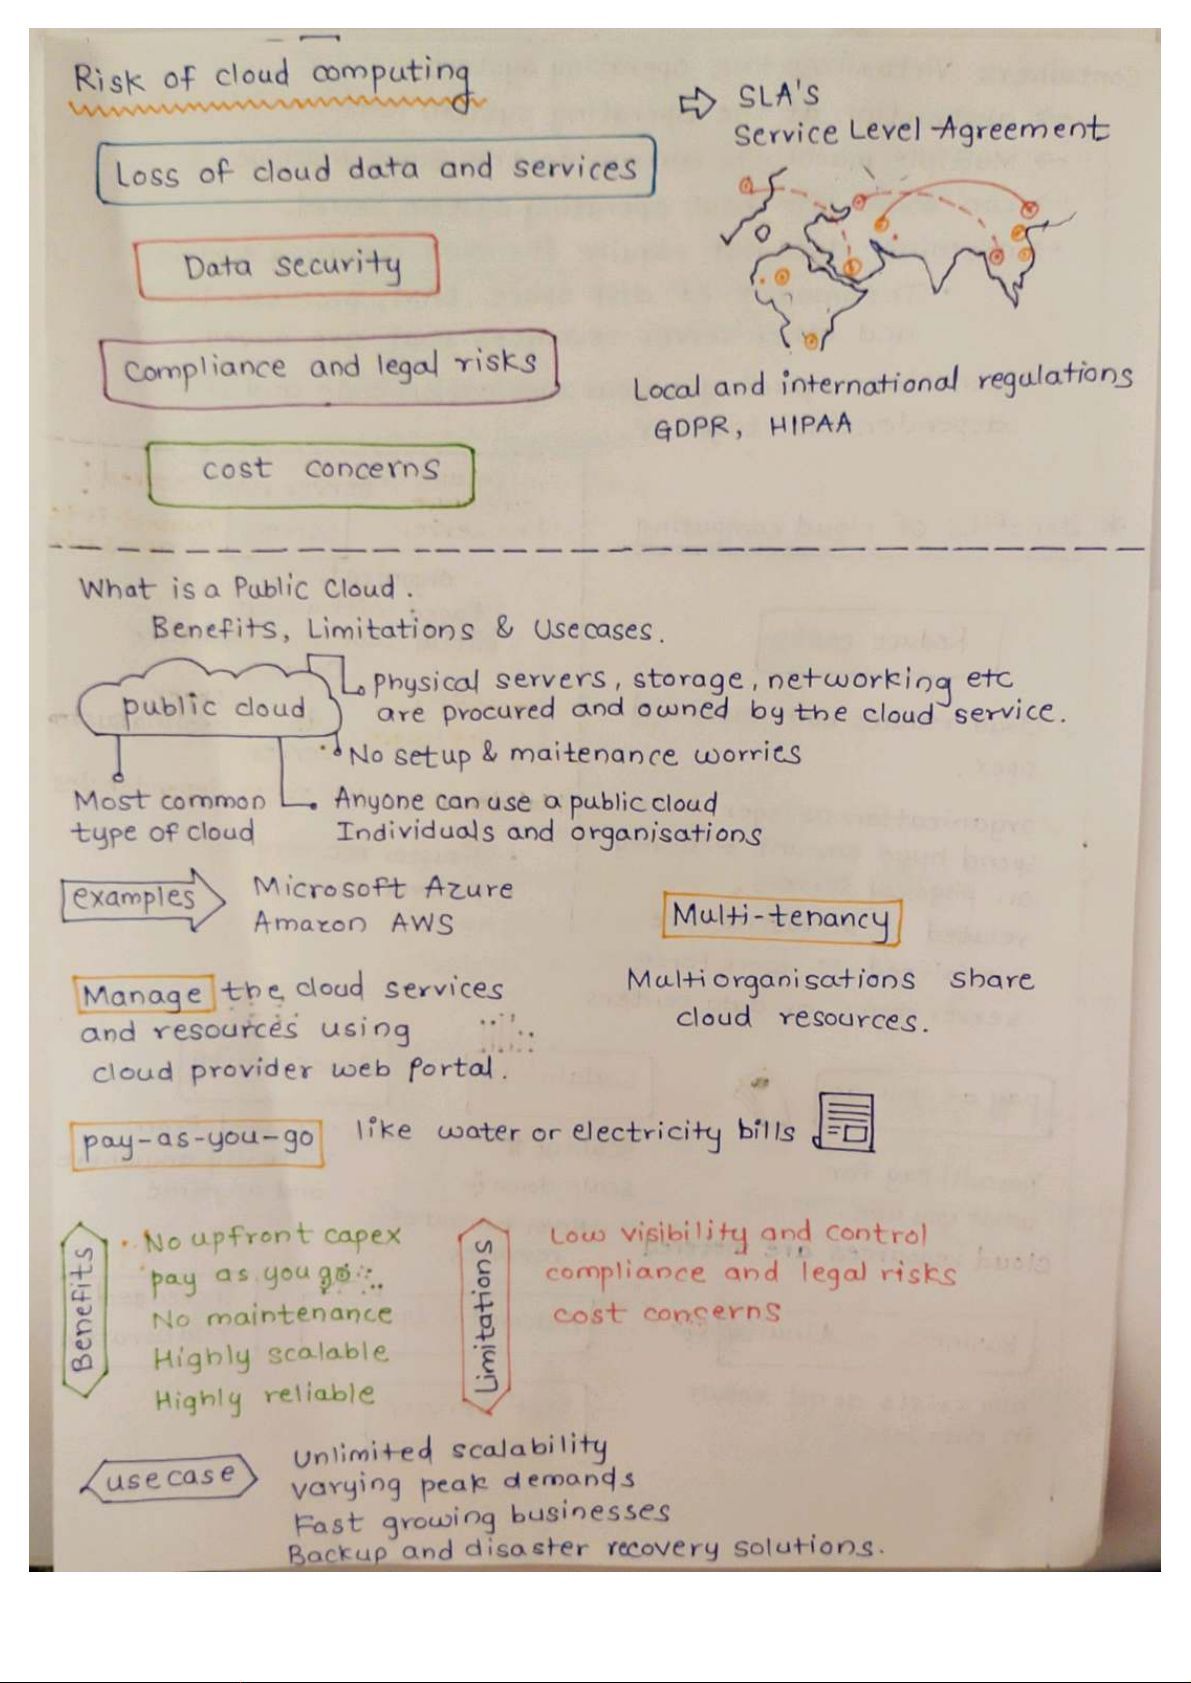 Risk of cloud computing
⇨ SLA's
Service Level Agreement
Loss of cloud data and services
Data security
Compliance and legal risks
Local and international regulations
GDPR, HIPAA
cost concerns
What is a Public Cloud.
Benefits, Limitations & Usecases.
public cloud
Physical servers, storage, networking etc
are procured and owned by the cloud service.
No setup & maitenance worries
Most common
type of cloud
Anyone can use a public cloud
Individuals and organisations
examples
Microsoft Azure
Amazon AWS
Multi-tenancy
Multi organisations share
cloud resources.
Manage the cloud services
and resources using
cloud provider web Portal.
pay-as-you-go like water or electricity bills
Benefits
No upfront capex
pay as you go
No maintenance
Highly scalable
Highly reliable
Limitations
Low visibility and control
compliance and legal risks
cost concerns
use case
Unlimited scalability
varying peak demands
Fast growing businesses
Backup and disaster recovery solutions.